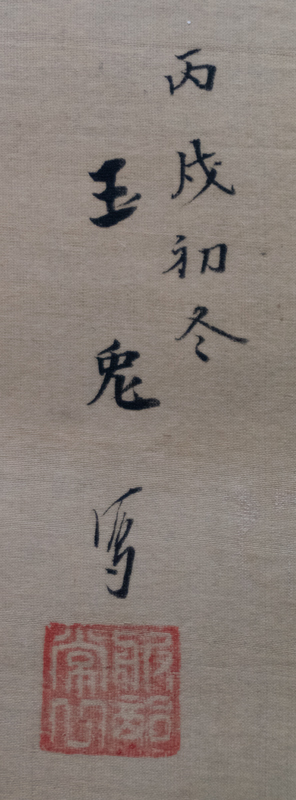 丙戌初冬
玉兔写